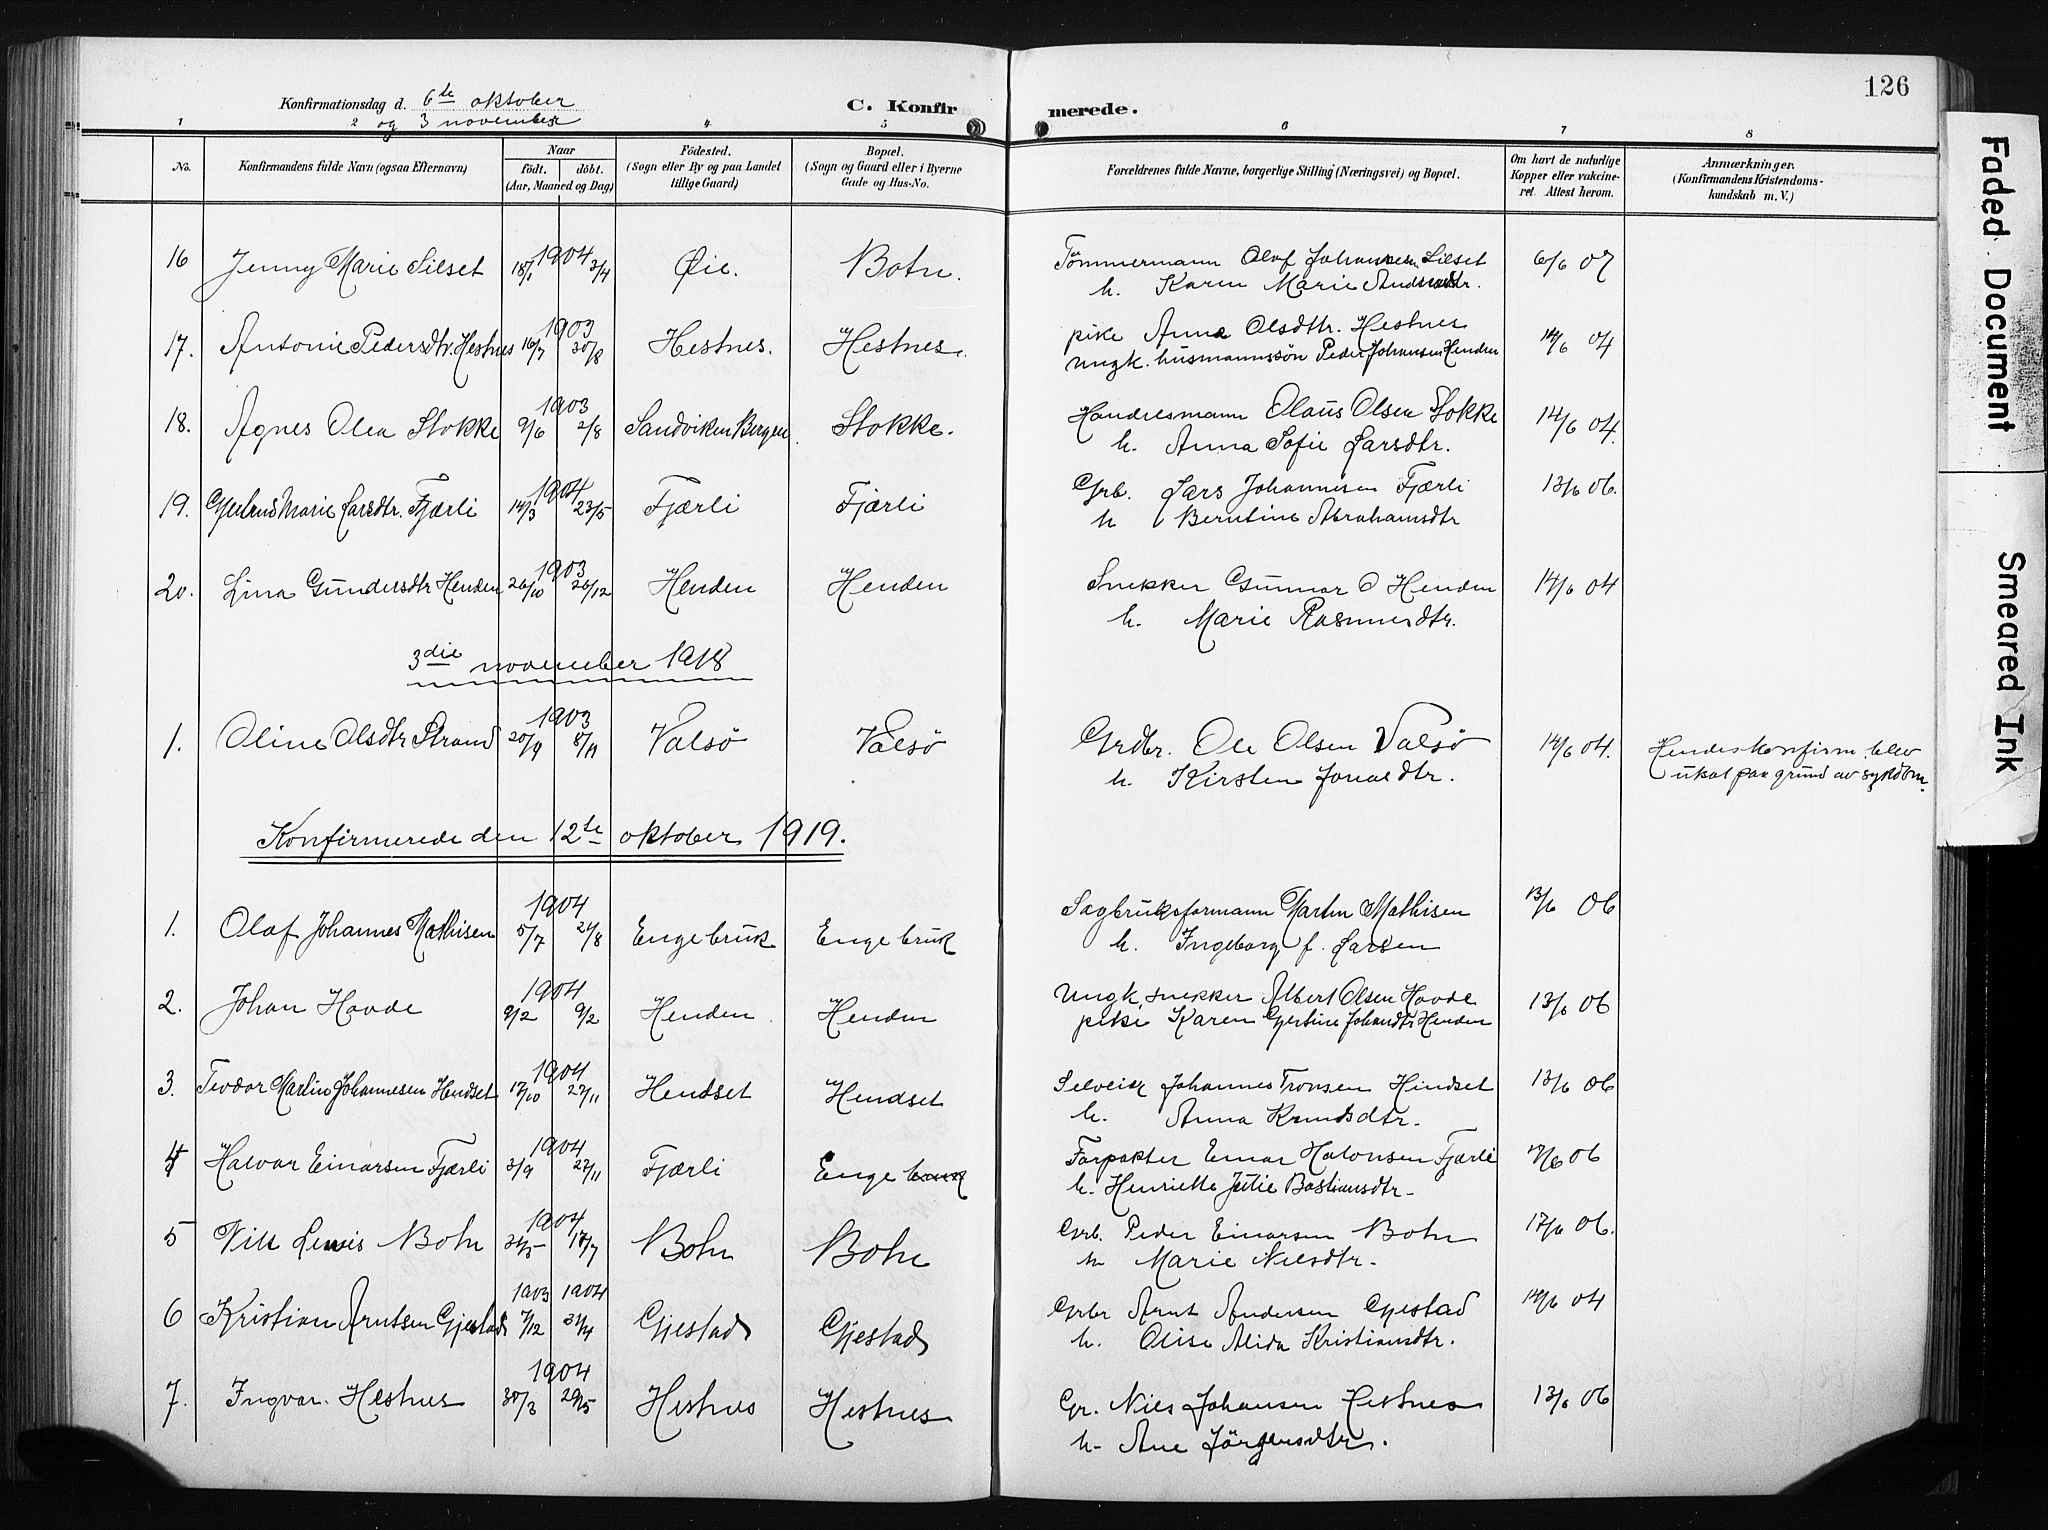 126
Konfirmationsdag d. 6te oktober
og 3 november
C. Konfirmerede.
1 2 4 5 6 7 8
No. Konfirmandens fulde Navn (ogsaa Efternavn) Naar født. døbt. (Aar, Maaned og Dag) Fødested. (Sogn eller By og paa Landet tillige Gaard) Bopæl. (Sogn og Gaard eller i Byerne Gade og Hus-No. Forældrenes fulde Navne, borgerlige Stilling (Næringsvei) og Bopæl. Om havt de naturlige Kopper eller vakcineret. Attest herom. Anmærkninger. (Konfirmandens Kristendomskundskab m. V.)
16 Jenny Marie Silset 18/1 1904 3/4 Øie. Botn. Tömmermann Olaf Johannesen Silset 6/6 07
h. Karen Marie Andersdtr.
17. Antonie Pedersdtr. Hestnes 16/7 1903 30/8 Hestnes. Hestnes. pike Anne Olsdttr. Hestnes 14/6 04
ungk. husmannssön Peder Johansen Henden
18. Agnes Olea Stokke 9/6 1903 2/8 Sandviken Bergen. Stokke. Handelsmann Olaus Olsen Stokke 14/6 04.
h. Anna Sofie Larsdtr.
19. Marie Larsdtr. Fjærli 14/3 1904 23/5 Fjærli Fjærli Grb. Lars Johannesen Fjærli 13/6 06.
h Berntine Abrahamsdtr
20. Lina Gundersdtr Henden 26/10 1903 26/12 Henden Henden Snekker Gunnar O Henden 14/6 04
h. Marie Rasmusdtr.
3die november 1918
1. Oline Olsdtr Strand 20/9 1903 8/11 Valsö Valsö Grdbr. Ole Olsen Valsö 14/6 04. Hendes konfirm. blev
h. Kirsten Jonasdtr. utsat paa grund av sykdom.
Konfirmerede den 12te oktober 1919.
1. Olaf Johannes Mathisen 5/7 1904 21/8 Engebruk Engebruk Sagbruksformann Martin Mathisen 13/6 06
h. Ingeborg f. Larsen
2. Johan Hovde 9/2 1904 9/2 Henden Henden Ungk. snekker Albert Olsen Hovde 13/6 06
pike Karen Gjertine Johandtr Henden
3. Tevdor Martin Johannesen Hendset 17/10 1904 27/11 Hendset Hendset Selveier Johannes Tronsen Hindset 13/6 06
h. Anna Knudsdtr.
4 Halvor Einarsen Fjærli 3/9 1904 27/11 Fjærli Enge bruk Forpakter Einar Halvorsen Fjærli 06
h. Henriette Julie Bastiansdtr.
5 Nils Lewis Botn 31/5 1904 17/7 Botn Botn Grb. Peder Einarsen Botn 17/6 06.
h Marie Nilsdtr.
6 Kristian Arntsen Gjestad 7/12 1903 1904 Gjestad Gjestad Grbr Arnt Andersen Gjestad 14/6 04
h. Olise Alida Kristiansdtr.
7. Ingvar. Hestnes 30/3 1904 29/5 Hestnes Hestnes Gr. Nils Johansen Hestnes 13/6 06
h. Ane Jörgensdtr.
Faded Document
Smeared Ink